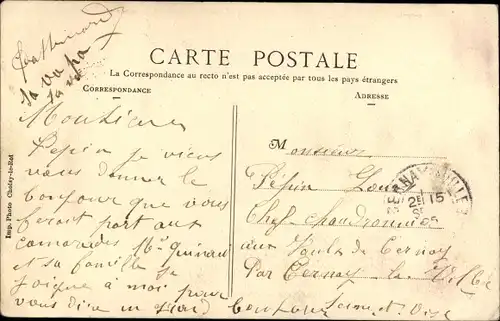 CARTE POSTALE
La Correspondance au recto n'est pas acceptée par tous les pays étrangers
CORRESPONDANCE
ADRESSE
Monsieur
Pépin je viens
vous donner le
bonjour que vous
feroit part aux
camarades Mr
et sa famille se
joigne a moi pour
vous dire un
bonjour
Monsieur
Pépin Louis
Chef chaudronnier
aux Vaulx de Cernay
Par Cernay la Ville
Seine et Oise
Imp. Photo Choisy-le-Roi